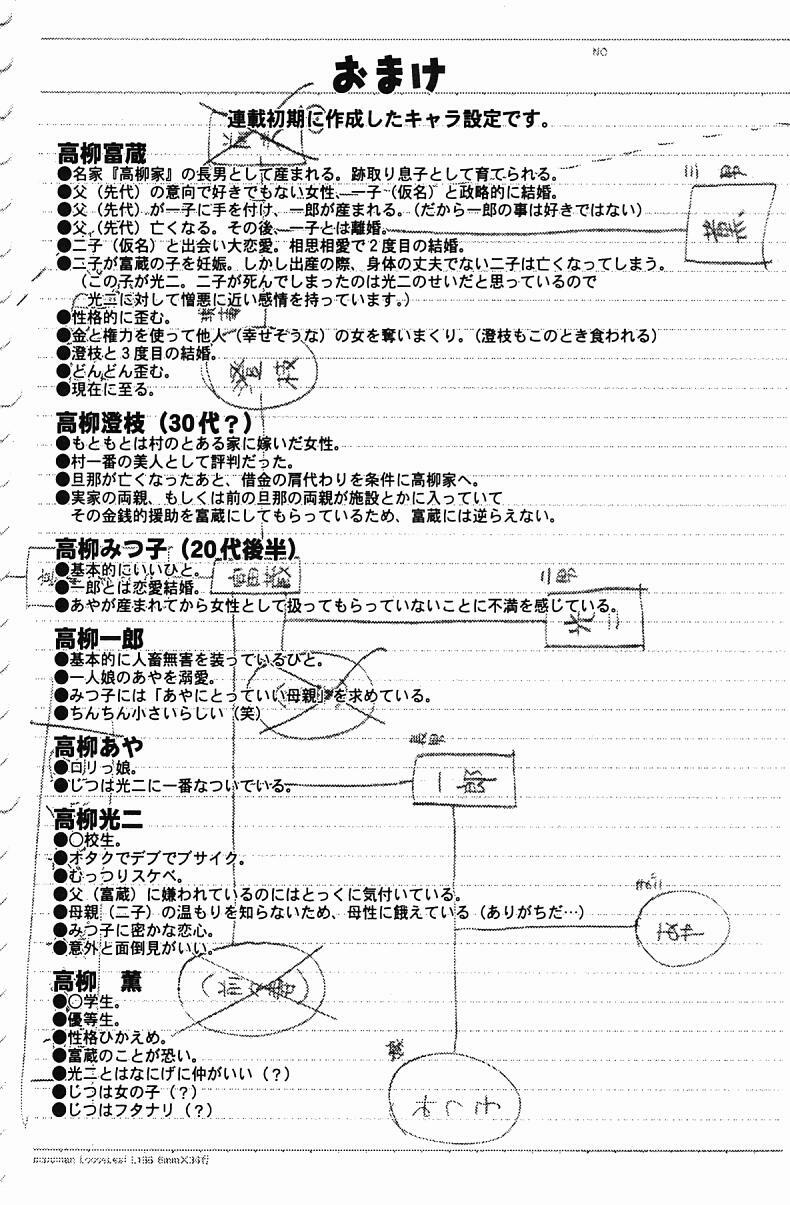 NO
おまけ
連載初期に作成したキャラ設定です。
高柳富蔵
●名家『高柳家』の長男として産まれる。跡取り息子として育てられる。
●父（先代）の意向で好きでもない女性、一子（仮名）と政略的に結婚。
●父（先代）が一子に手を付け、一郎が産まれる。（だから一郎の事は好きではない）
●父（先代）亡くなる。その後、一子とは離婚。
●二子（仮名）と出会い大恋愛。相思相愛で２度目の結婚。
●二子が富蔵の子を妊娠。しかし出産の際、身体の丈夫でない二子は亡くなってしまう。
（この子が光二。二子が死んでしまったのは光二のせいだと思っているので
光二に対して憎悪に近い感情を持っています。）
●性格的に歪む。
●金と権力を使って他人（幸せそうな）の女を奪いまくり。（澄枝もこのとき食われる）
●澄枝と３度目の結婚。
●どんどん歪む。
●現在に至る。
高柳澄枝（30代？）
●もともとは村のとある家に嫁いだ女性。
●村一番の美人として評判だった。
●旦那が亡くなったあと、借金の肩代わりを条件に高柳家へ。
●実家の両親、もしくは前の旦那の両親が施設とかに入っていて
その金銭的援助を富蔵にしてもらっているため、富蔵には逆らえない。
高柳みつ子（20代後半）
●基本的にいいひと。
●一郎とは恋愛結婚。
●あやが産まれてから女性として扱ってもらっていないことに不満を感じている。
高柳一郎
●基本的に人畜無害を装っているひと。
●一人娘のあやを溺愛。
●みつ子には「あやにとっていい母親」を求めている。
●ちんちん小さいらしい（笑）
高柳あや
●ロリっ娘。
●じつは光二に一番なついでいる。
高柳光二
●〇校生。
●オタクでデブでブサイク。
●むっつりスケベ。
●父（富蔵）に嫌われているのにはとっくに気付いている。
●母親（二子）の温もりを知らないため、母性に餓えている（ありがちだ…）
●みつ子に密かな恋心。
●意外と面倒見がいい。
高柳　薫
●〇学生。
●優等生。
●性格ひかえめ。
●富蔵のことが恐い。
●光二とはなにげに仲がいい（？）
●じつは女の子（？）
●じつはフタナリ（？）
三郎
薫
澄枝
富蔵
二郎
光二
長男
一郎
あや
みつ子